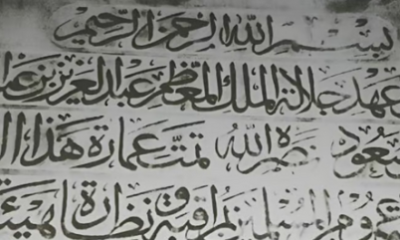 بسم الله الرحمن الرحيم
عهد جلالة الملك المعظم عبد العزيز بن عبد
سعود نصره الله تمت عمارة هذا
عموم المسلمين بمراقبة ونظارة هيئة